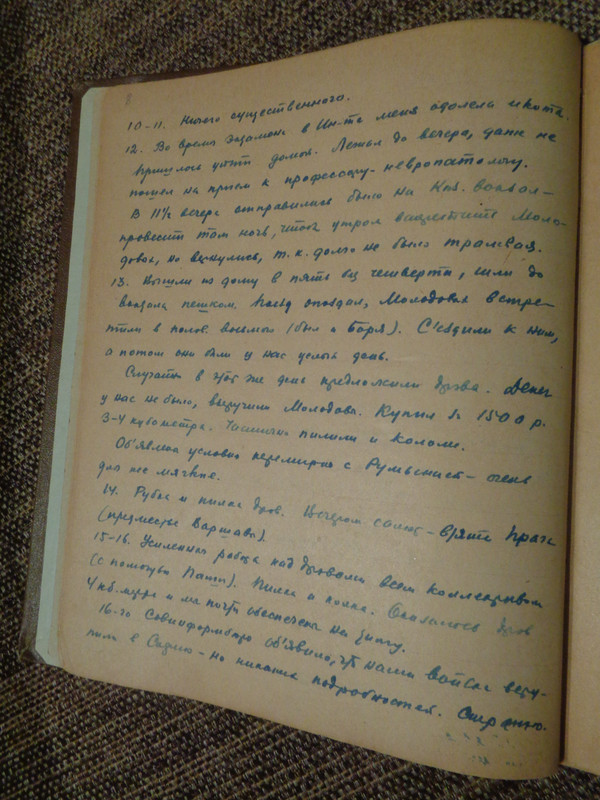 10-11. Ничего существенного.
12. Во время экзамена в Ин-те меня одолела икота.
Пришлось уйти домой. Лежал до вечера, даже не
пошел на прием к профессору-невропатологу.
В 11½ вечера отправились было на вокзал-
провести там ночь, чтобы утром Моло-
довых, но вернулись, т.к. долго не было трамвая.
13. Вышли из дому в пять без четверти, шли до
вокзала пешком. Поезд опоздал, Молодовых встре-
тили в полов. восьмого (был и Боря). С'ездили к ним,
а потом они были у нас целый день.
Случайно в этот же день предложили дрова. Денег
у нас не было, выручили Молодовы. Купил за 1500 р.
3-4 кубометра. Частично пилили и кололи.
Об'явлены условия перемирия с Румынией - очень
для нее мягкие.
14. Рубка и пилка дров. Вечером салют - взята Прага
(предместье Варшавы).
15-16. Усиленная работа над дровами всем коллективом
(с помощью). Пилка и колка. Оказалось дров
4 кб. метра и мы почти обеспечены на зиму.
16-го Совинформбюро об'явило, что наши войска всту-
пили в Софию - но никаких подробностей. Странно.